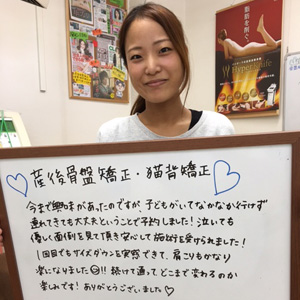 脂肪を削ぐ。
Hyper Knife
産後骨盤矯正・猫背矯正
今まで興味があったのですが、子どもがいてなかなか行けず
連れてきても大丈夫ということで予約しました!泣いても
優しく面倒を見て頂き安心して施術を受けられました!
1回目でもサイズダウンを実感できて、肩こりもかなり
楽になりました!!続けて通ってどこまで変わるのか
楽しみです!ありがとうございました♡